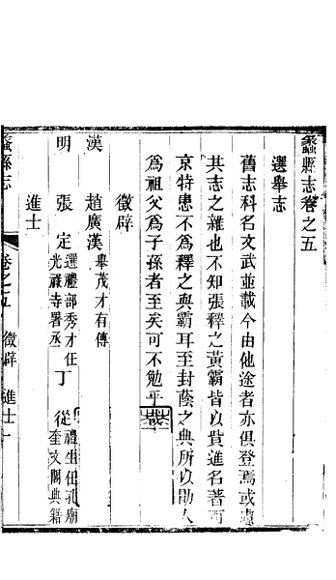 蠡縣志卷之五
選舉志
舊志科名文武並載今由他途者亦俱登焉或虛
其志之雜也不知張釋之黃霸皆以貲進名著西
京特患不為釋之與霸耳至封蔭之典所以勸人
為祖父為子孫者至矣可不勉乎
徵辟
漢 趙廣漢 舉茂才有傳
明 張定 選禮部秀才任光祿寺署丞 丁從 禮生任孔廟奎文閣典籍
進士
蠡縣志 卷之五 徵辟 進士 一